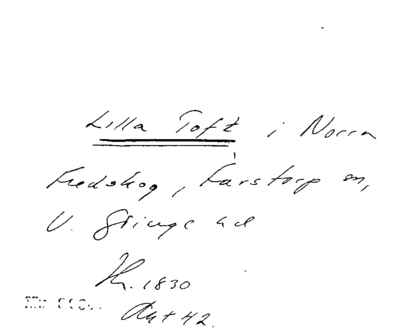 Lilla Toft i Norra
Fredskog, Farstorp sn,
V. Göinge hd
1830
42.